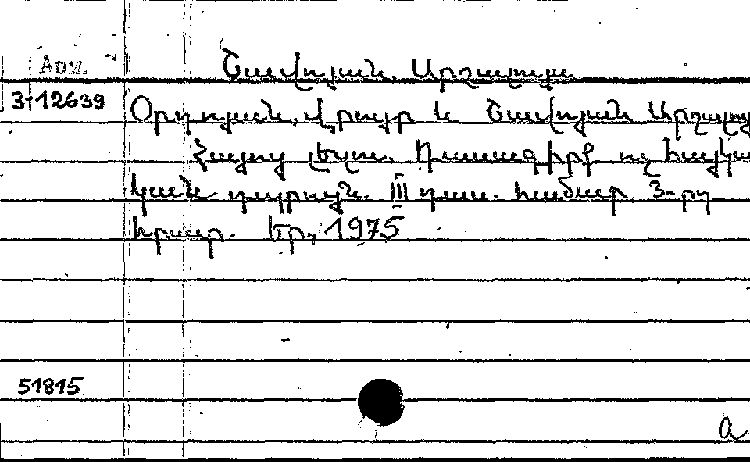 Арм. Շավոյան, Արշալույս
3-12639 Օրդոյան, Վրույր և Շավոյան Արշալույ
Հայոց լեզու. Դասագիրք ոչ հայկա
կան դպրոցի III դաս. համար 3-րդ
հրատ. Եր., 1975
51815
a